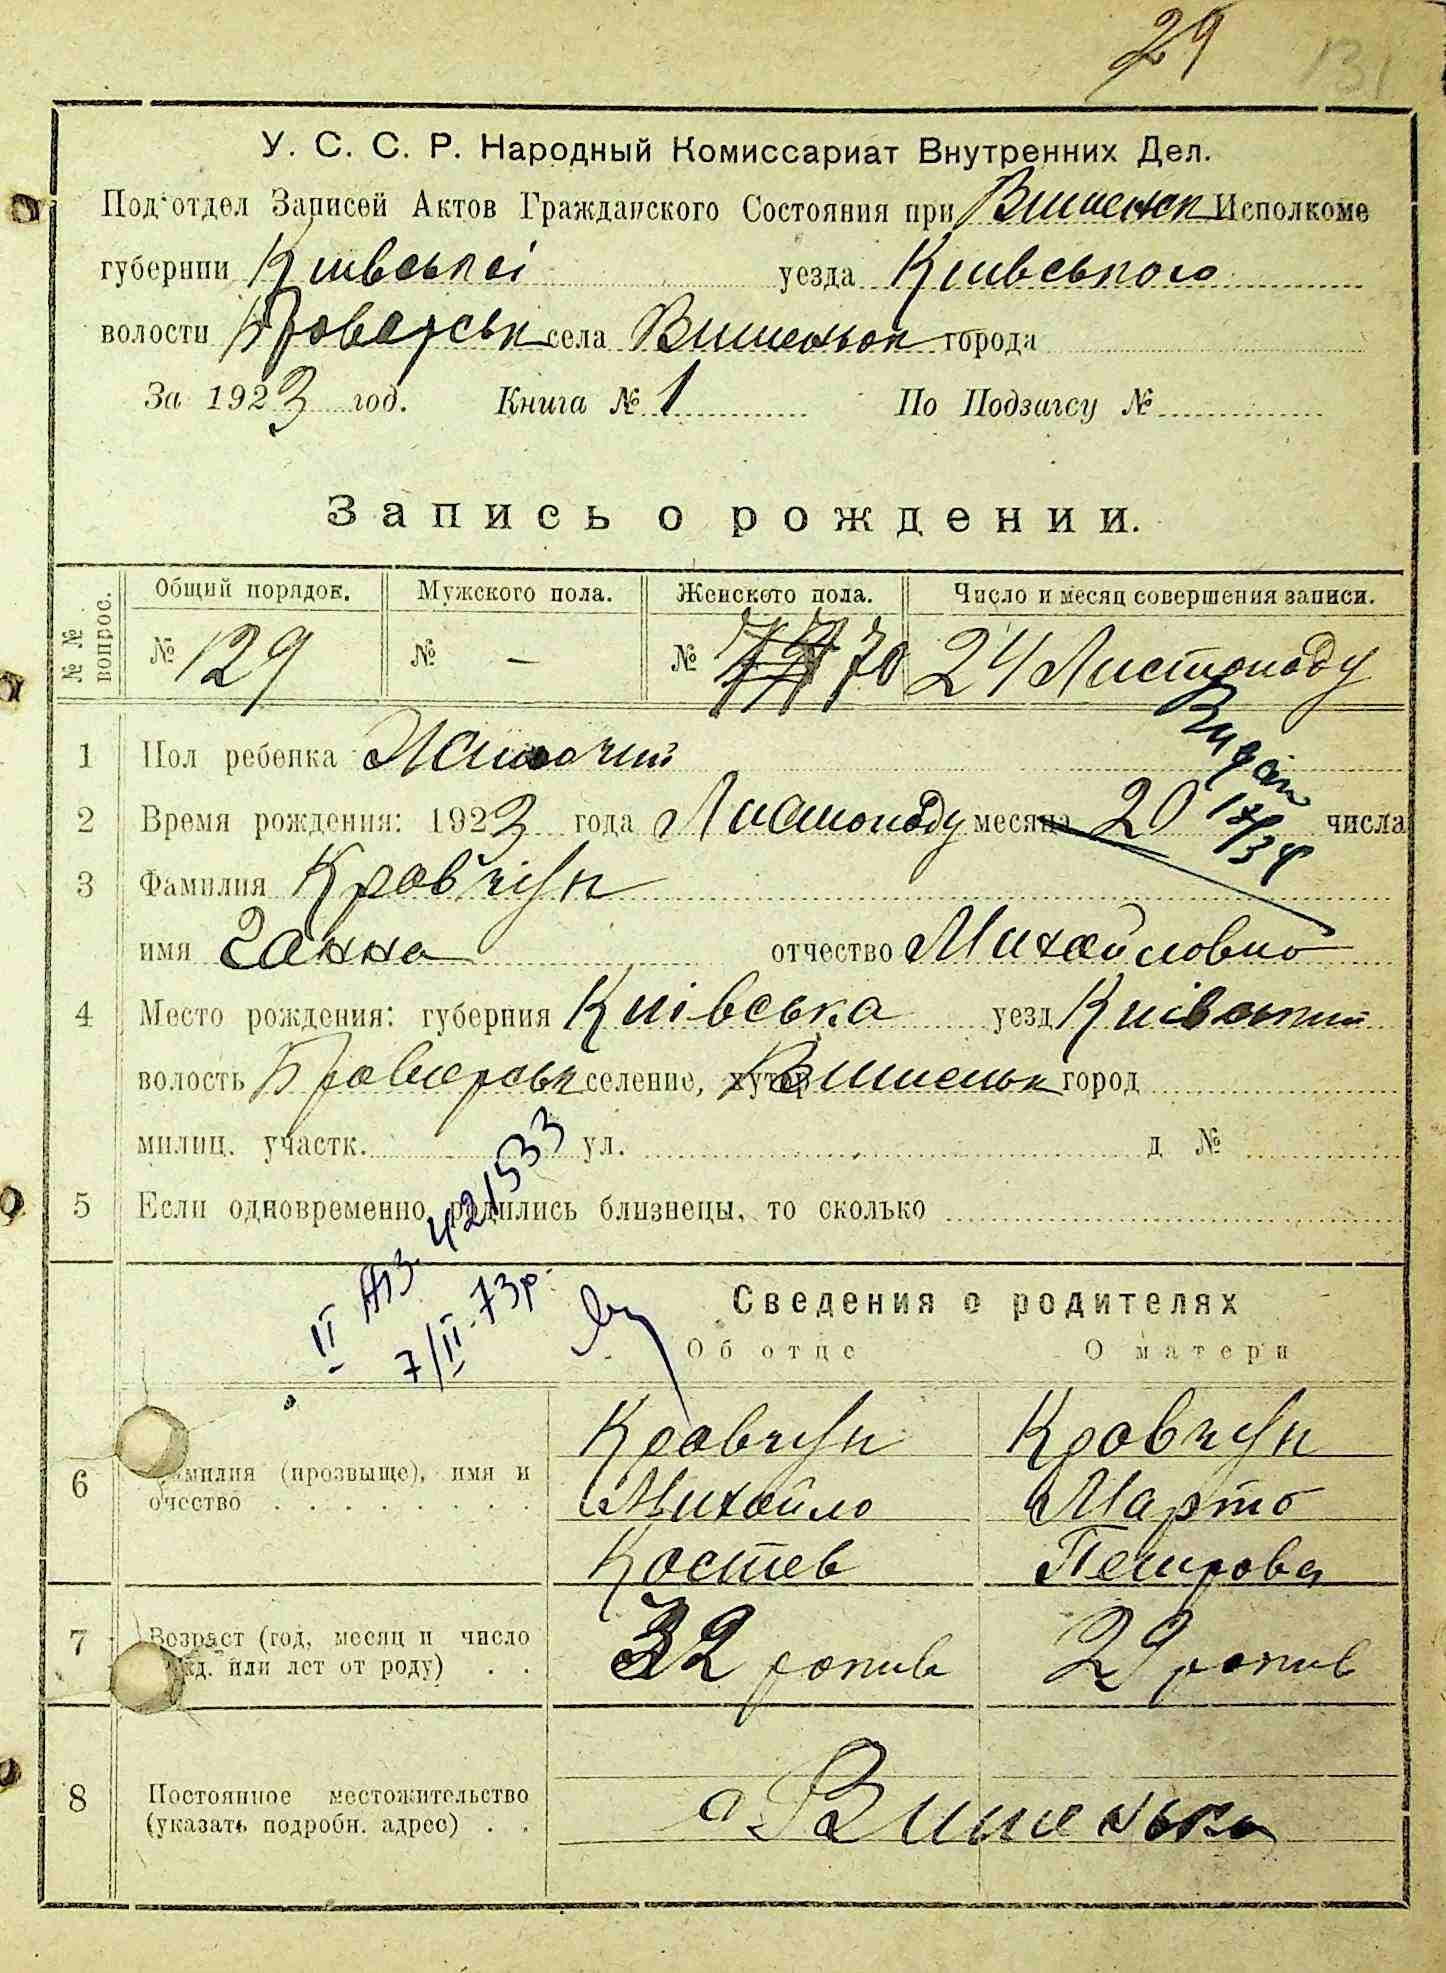 29
131
У. С. С. Р. Народный Комиссариат Внутренних Дел.
Под'отдел Записей Актов Гражданского Состояния при Вишеньк Исполкоме
губернии Київської уезда Київського
волости Броварськ села Вишеньок города
За 1923 год. Книга № 1 По Подзагсу №
Запись о рождении.
№ № вопрос. Общий порядок. Мужского пола. Женского пола. Число и месяц совершения записи.
№ 129 № — № 70 24 Листопаду
1 Пол ребенка Жіночий
Видан
2 Время рождения: 1923 года Листопаду месяца 20 числа
17/34
3 Фамилия Кравчун
имя Ганна отчество Михайловно
4 Место рождения: губерния Київська уезд Київський
волость Броварськ селение, хутор Вишеньк город
милиц. участк. ул. д №
5 Если одновременно родились близнецы, то сколько
II АПЗ 421533
7/II-73р.
Сведения о родителях
Об отце О матери
Кравчун Кравчун
6 Фамилия (прозвыще), имя и Михайло Марта
очество Костев Петрова
7 Возраст (год, месяц и число 32 років 29 років
рожд. или лет от роду)
8 Постоянное местожительство с Вишеньки
(указать подробн. адрес)